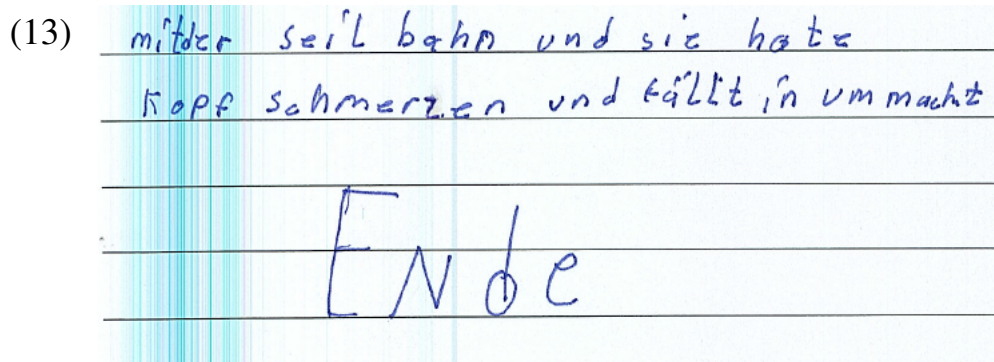 (13) mitder seil bahn und sie hate
Kopf schmerzen und fällt in ummacht
ENde